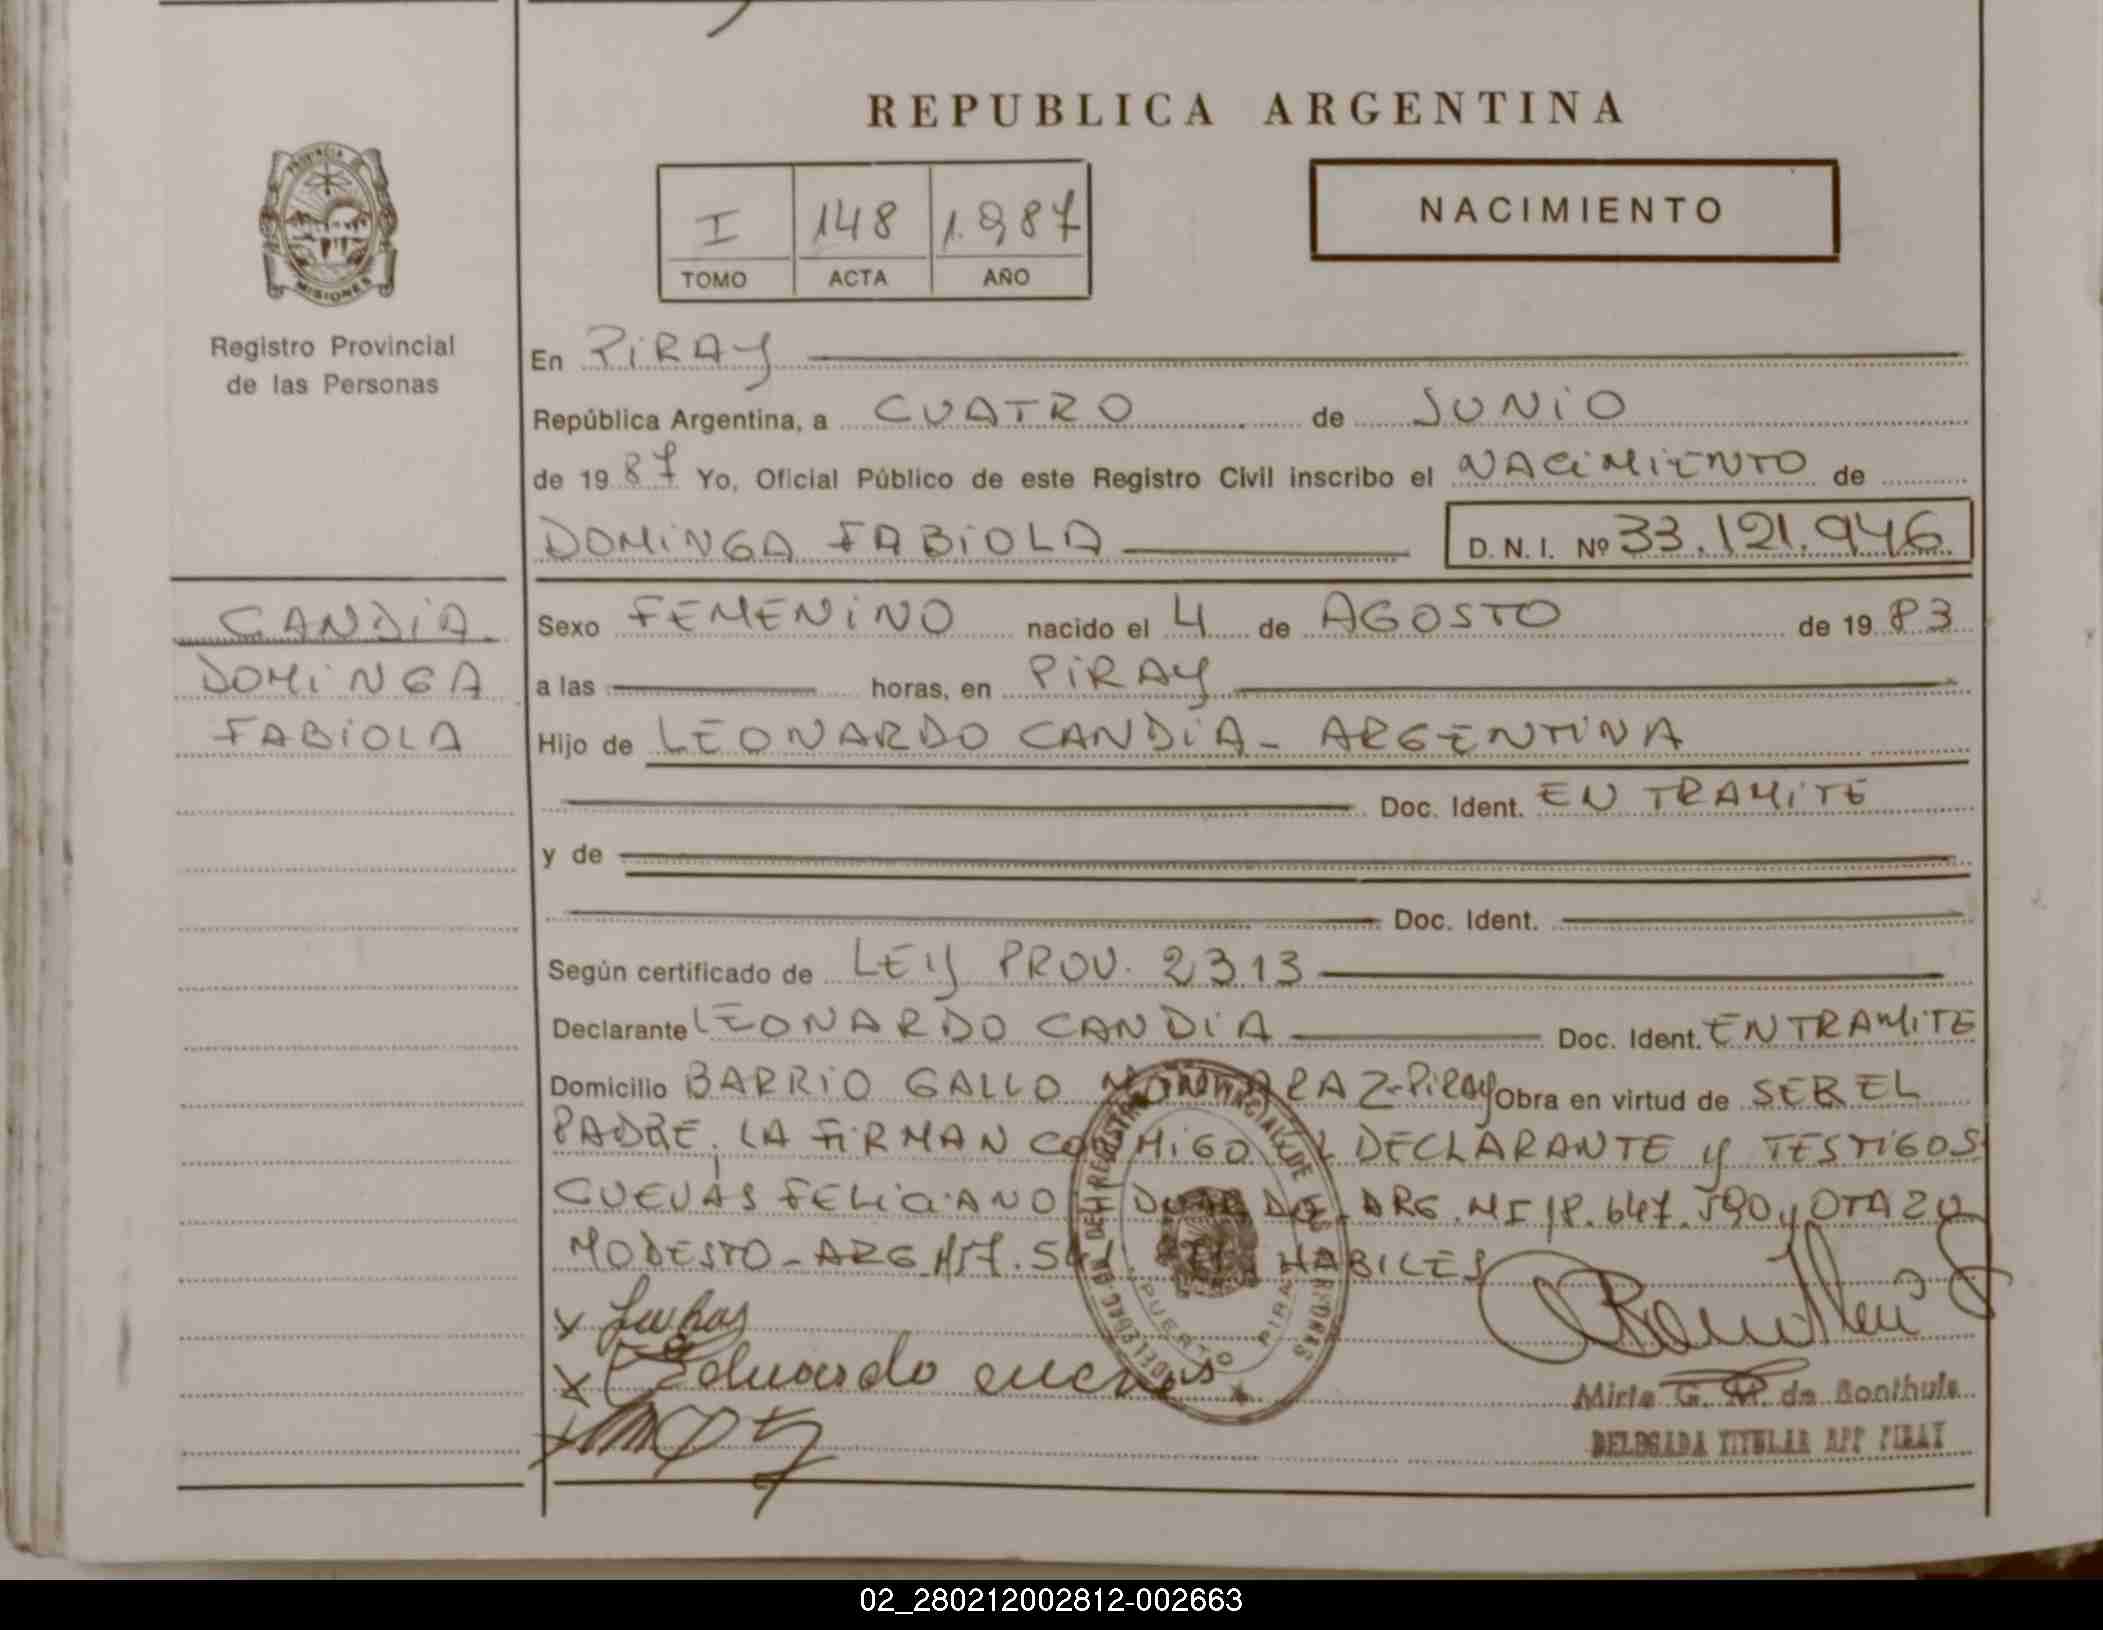 REPUBLICA ARGENTINA
PROVINCIA DE
MISIONES
Registro Provincial
de las Personas
I 148 1.987
TOMO ACTA AÑO
NACIMIENTO
En PiRAY
República Argentina, a CUATRO de JUNiO
de 1987 Yo, Oficial Público de este Registro Civil inscribo el NACiMiENTO de
DOMiNGA FABiOLA D. N. I. Nº 33.121.946
CANDiA
DOMiNGA
FABiOLA
Sexo FEMENiNO nacido el 4 de AGOSTO de 1983
a las horas, en PiRAY
Hijo de LEONARDO CANDiA - ARGENTiNA
Doc. Ident. EN TRAMiTE
y de
Doc. Ident.
Según certificado de LEY PROV. 2313
Declarante LEONARDO CANDiA Doc. Ident. EN TRAMiTE
Domicilio BARRiO GALLO - PiRAY Obra en virtud de SER EL
PADRE, LA FiRMAN DECLARANTE Y TESTiGOS
CUEVAS FELiCiANO ARG. MI 18.647.590 y OTAZU
MODESTO - ARG HABiLES
PUERTO PIRAY
Eduardo cuevas
Mirta G. M. de Bonthuis
DELEGADA TITULAR RPP PIRAY
02_280212002812-002663